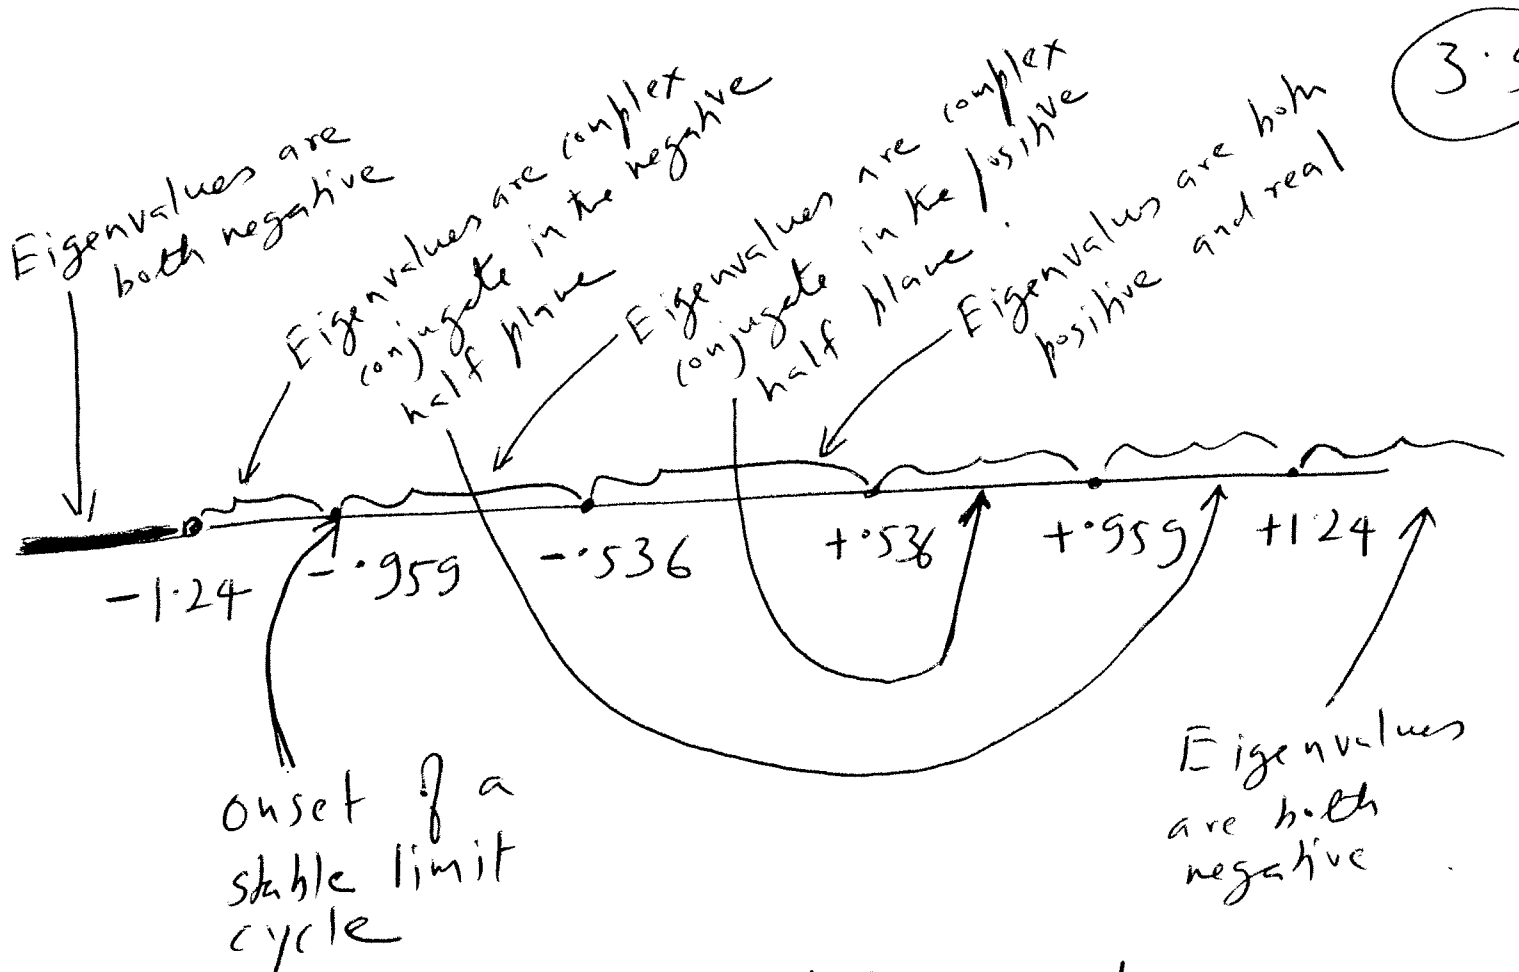 3.
Eigenvalues are
both negative
Eigenvalues are complex
conjugate in the negative
half plane
Eigenvalues are complex
conjugate in the positive
half plane.
Eigenvalues are both
positive and real
-1.24
-.959
-.536
+.536
+.959
+1.24
onset of a
stable limit
cycle
Eigenvalues
are both
negative